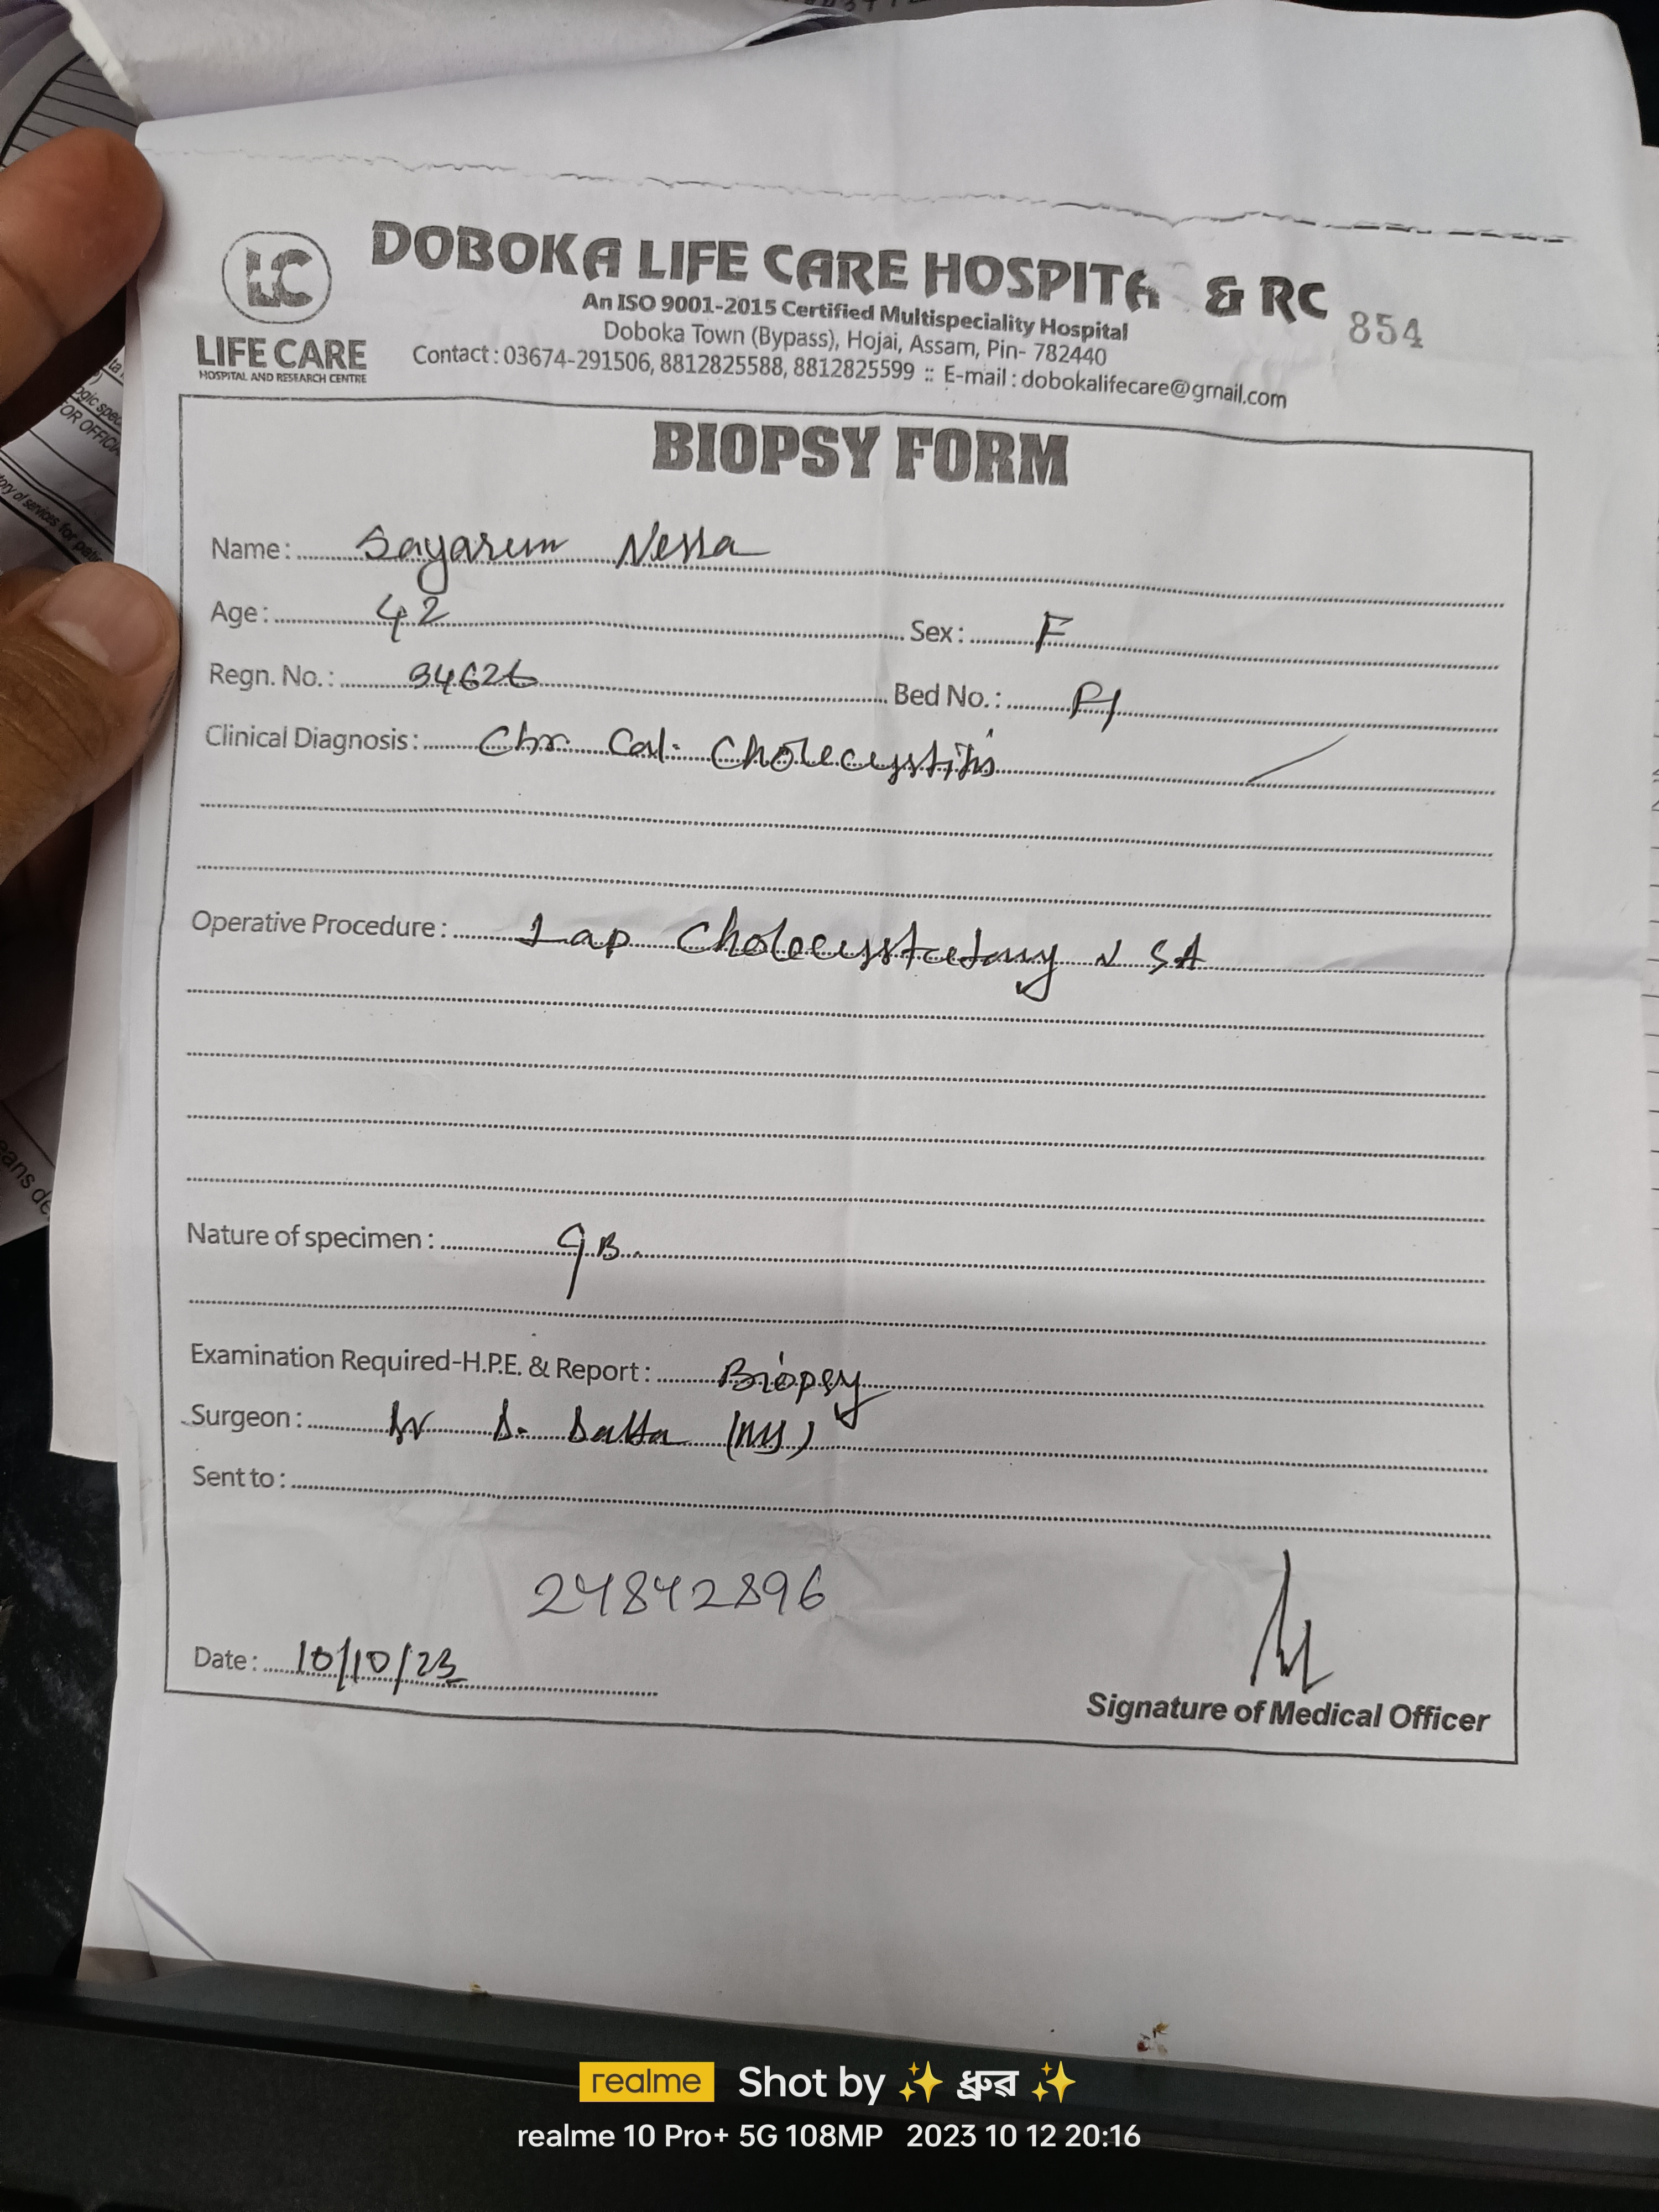 DOBOKA LIFE CARE HOSPITA & RC
An ISO 9001-2015 Certified Multispeciality Hospital
854
LIFE CARE
HOSPITAL AND RESEARCH CENTRE
Doboka Town (Bypass), Hojai, Assam, Pin- 782440
Contact : 03674-291506, 8812825588, 8812825599 :: E-mail : dobokalifecare@gmail.com
BIOPSY FORM
Name : Sayarun Nessa
Age : 42 Sex : F
Regn. No. : 34626 Bed No. :
Clinical Diagnosis : Chr. Cal. Cholecystitis
Operative Procedure : Lap Cholecystectomy SA
Nature of specimen : GB.
Examination Required-H.P.E. & Report : Biopsy
Surgeon : Dr D. Datta (MS)
Sent to :
24842896
Date : 10/10/23
Signature of Medical Officer
realme Shot by ✨ ধ্ৰুৱ ✨
realme 10 Pro+ 5G 108MP 2023 10 12 20:16